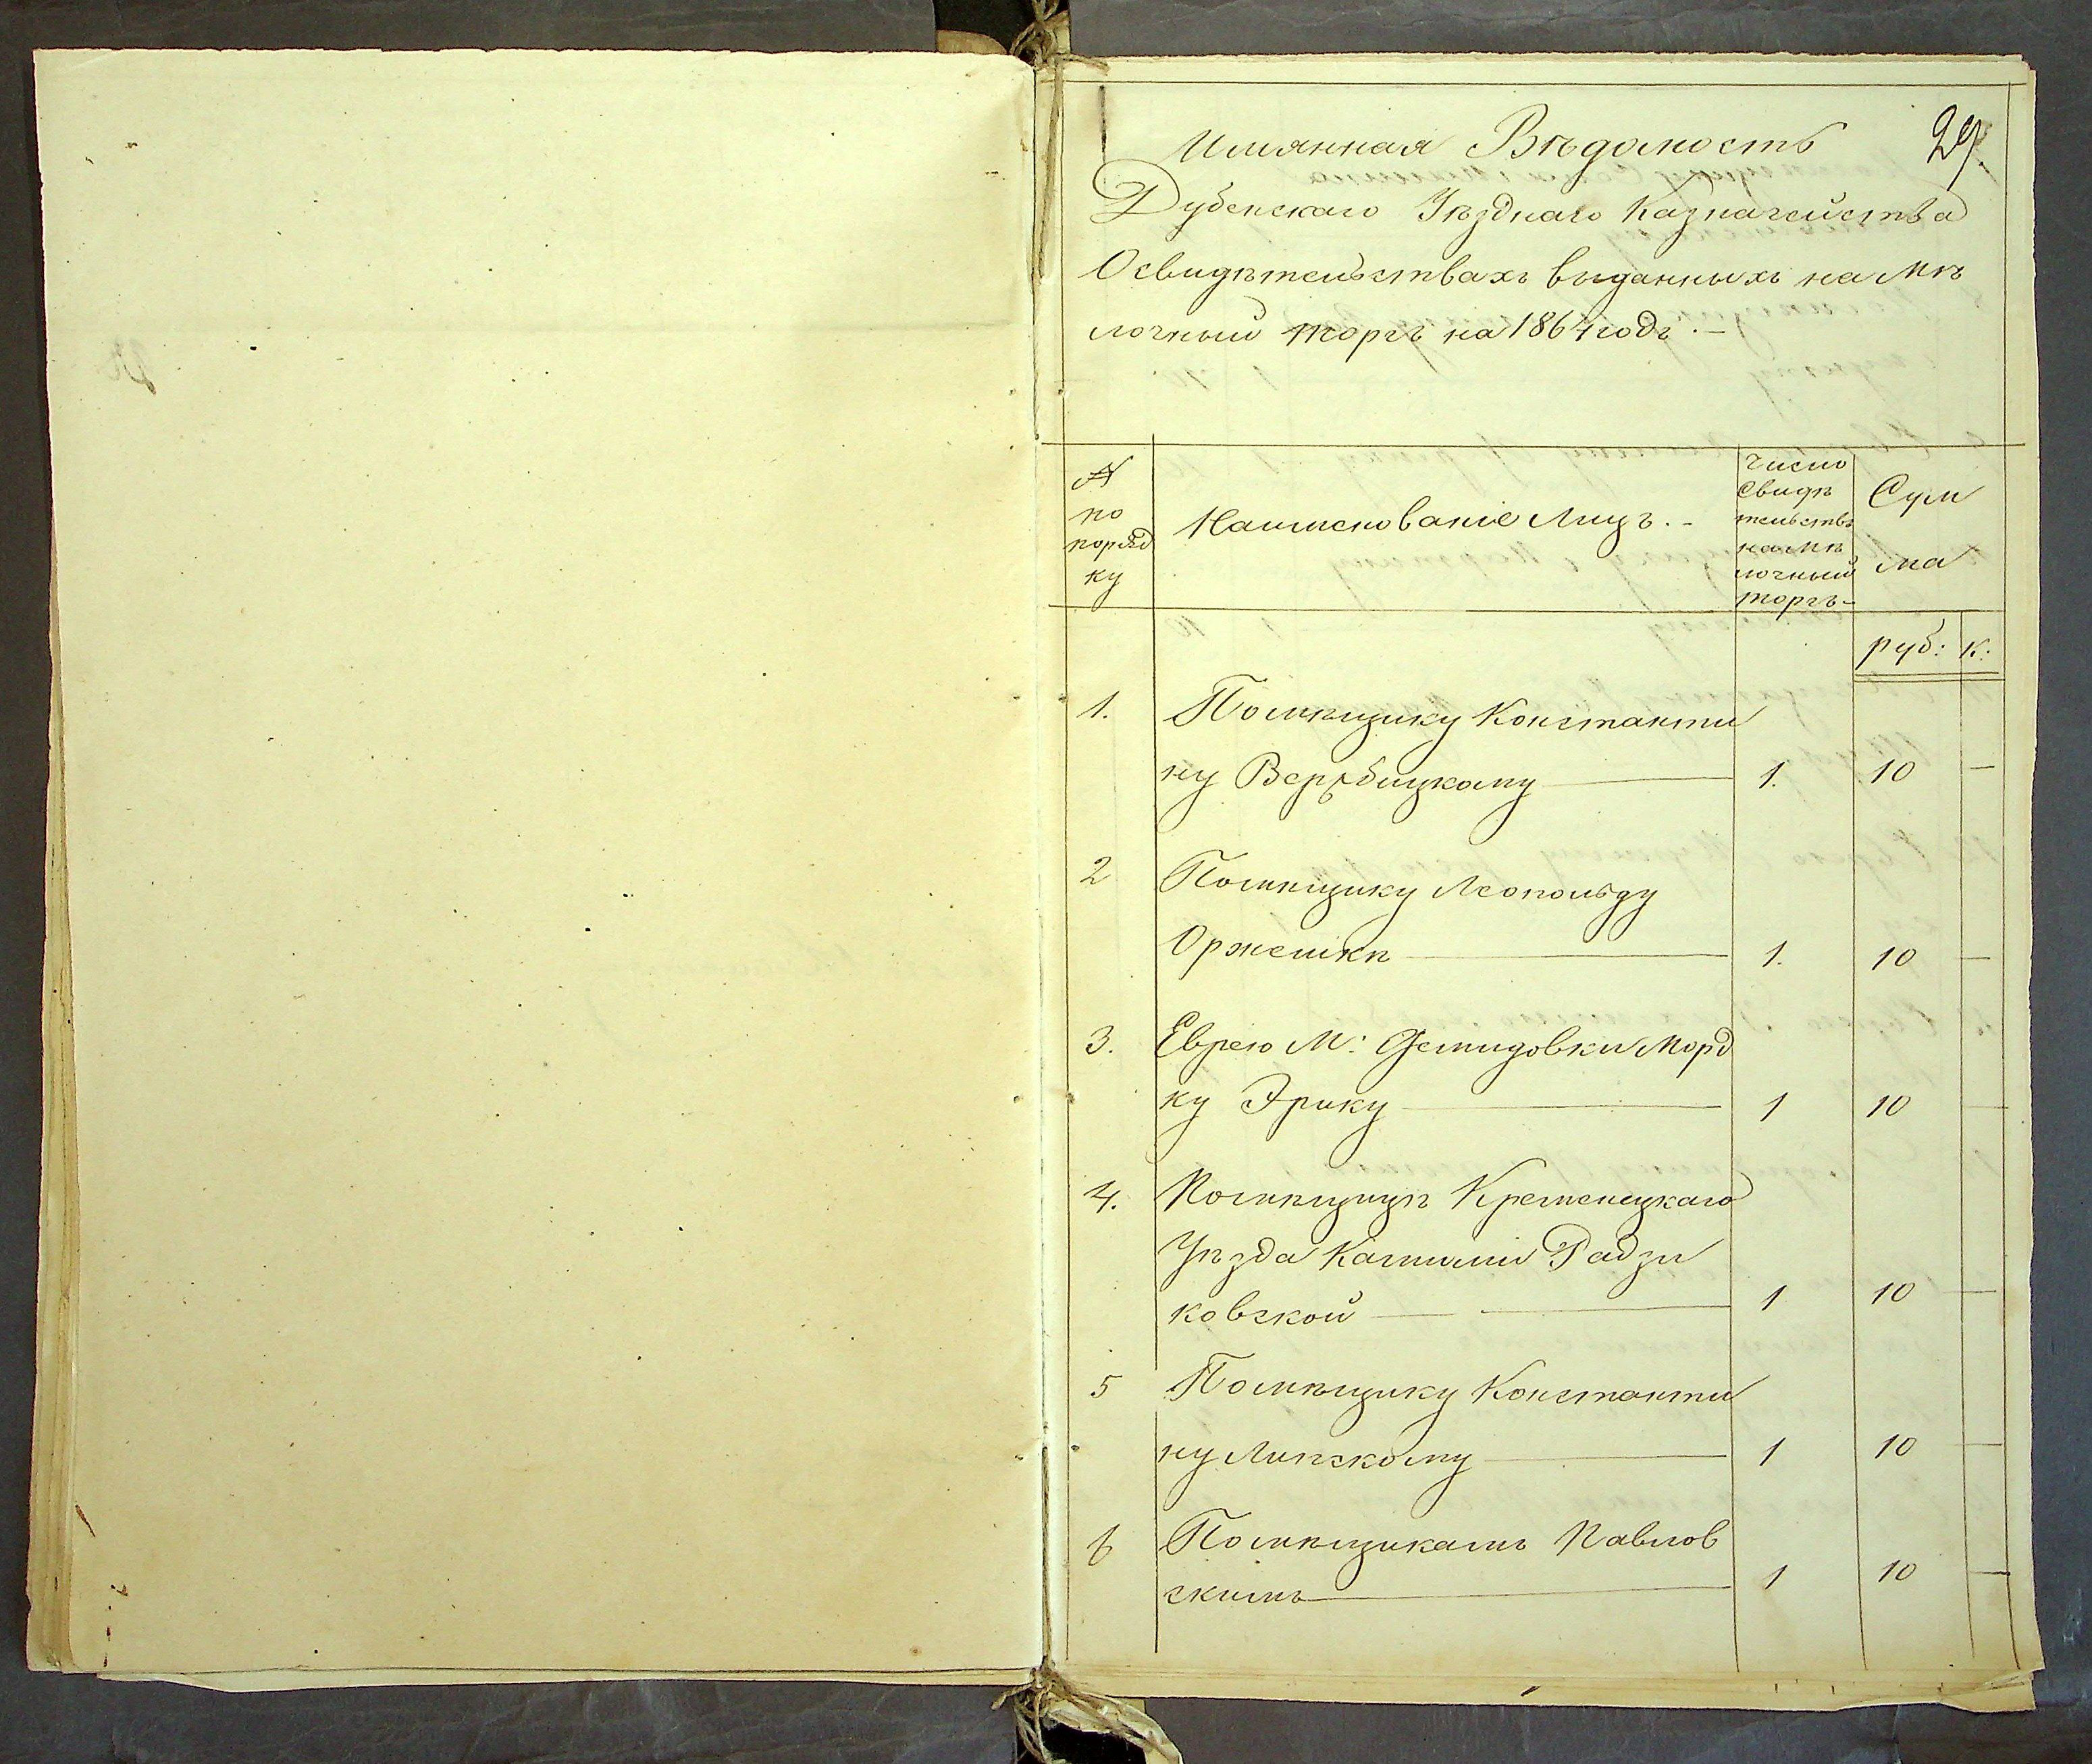 29.
Имянная Вѣдомость
Дубенскаго Уѣзднаго Казначейства
О свидѣтельствахъ выданныхъ на мѣ
лочный торгъ на 1864 годъ. –
№
по
поряд
ку
Наименованіе Лицъ. –
Число
свидѣ
тельствъ
на мѣ
лочный
торгъ –
Сум
ма
руб: к:
1. Помѣщику Константи
ну Вербицкому — 1. 10 —
2 Помѣщику Леопольду
Оржешкѣ — 1. 10 —
3. Еврею М: Демидовки Морд
ку Эрику — 1 10 —
4. Помѣщицѣ Кременецкаго
Уѣзда Камилии Радзи
ковской — 1 10 —
5 Помѣщику Константи
ну Липскому — 1 10 —
6 Помѣщикамъ Павлов
скимъ — 1 10 —